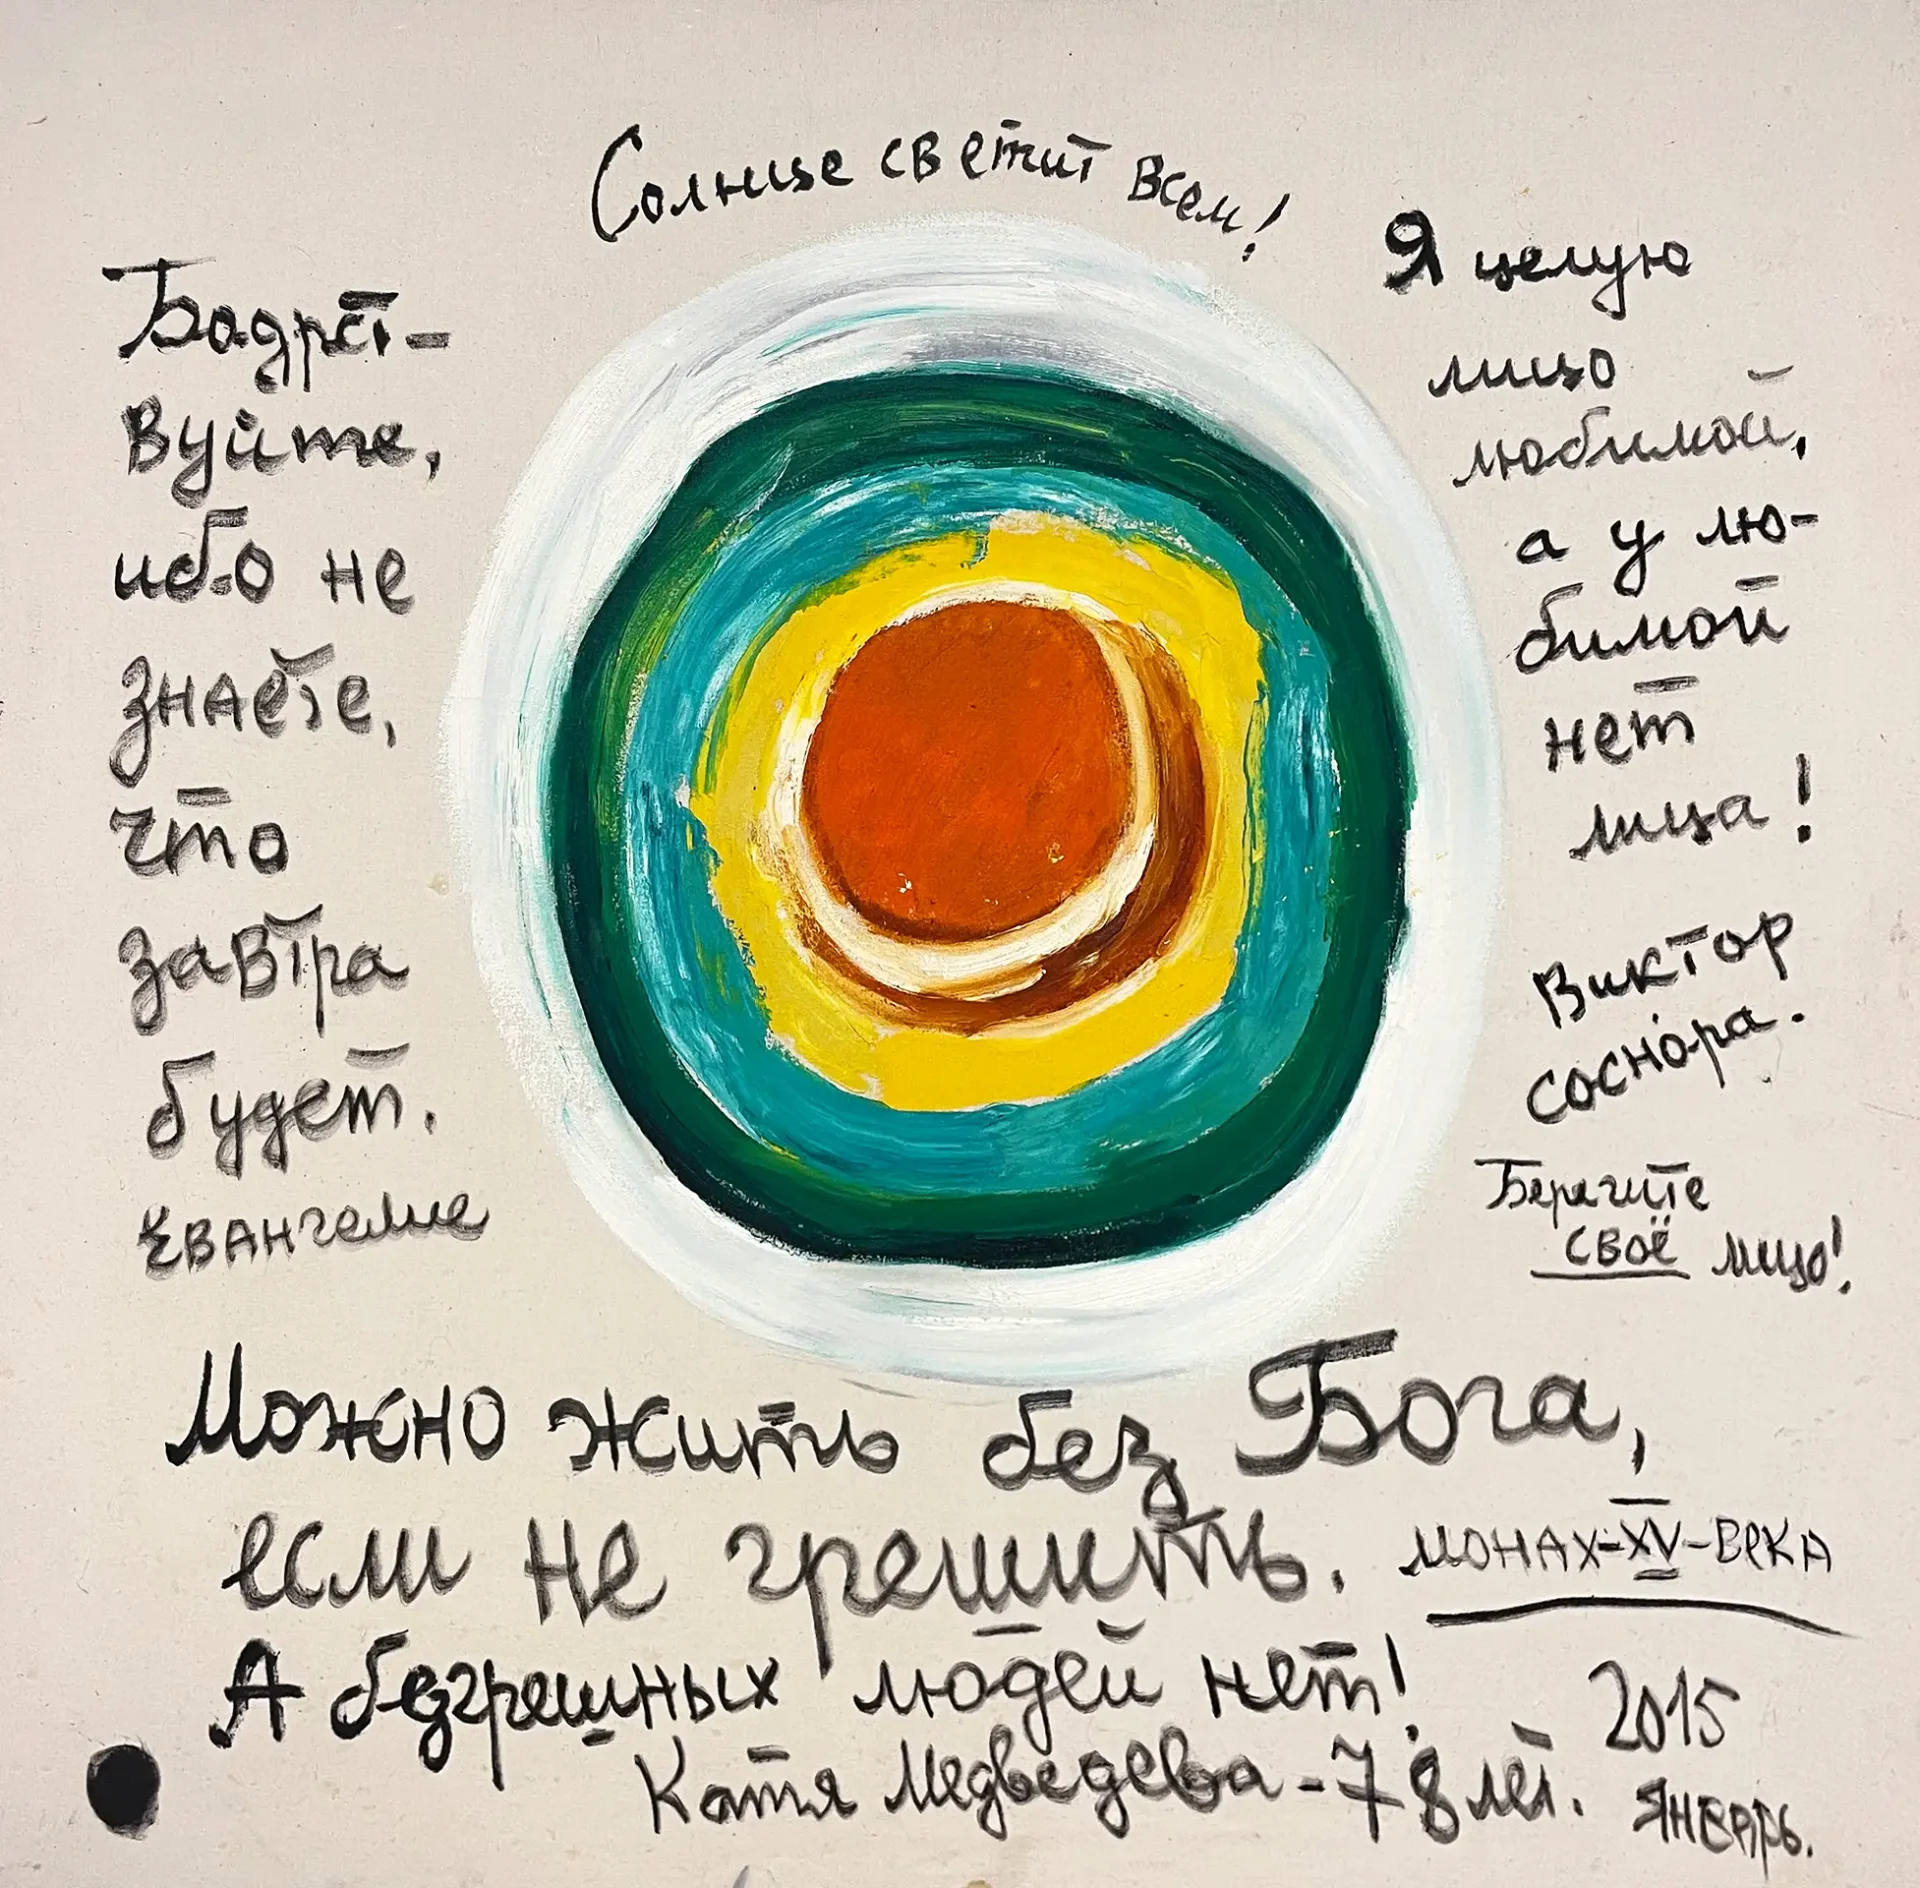 Солнце светит всем!
Бодрст-
вуйте,
ибо не
знаете,
что
завтра
будет.
Евангелие
Я целую
лицо
любимой,
а у лю-
бимой
нет
лица!
Виктор
соснора.
Берегите
своё лицо!
Можно жить без Бога,
если не грешить. монах-XV-века
А безгрешных людей нет!
Катя Медведева-78 лет.
2015
январь.